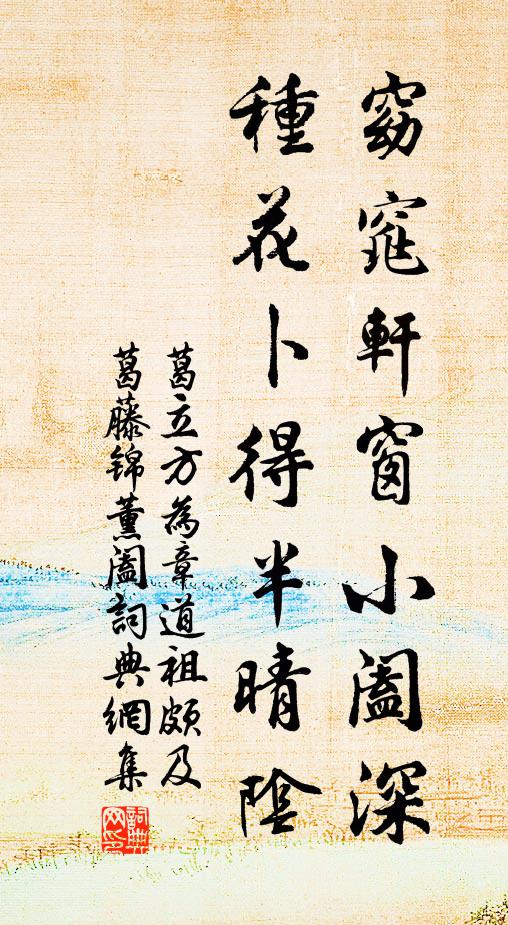 窈窕軒窗小闔深
種花卜得半晴陰
葛立方為章道祖頗及
葛藤錦薰闔詞典網集
詞典網印